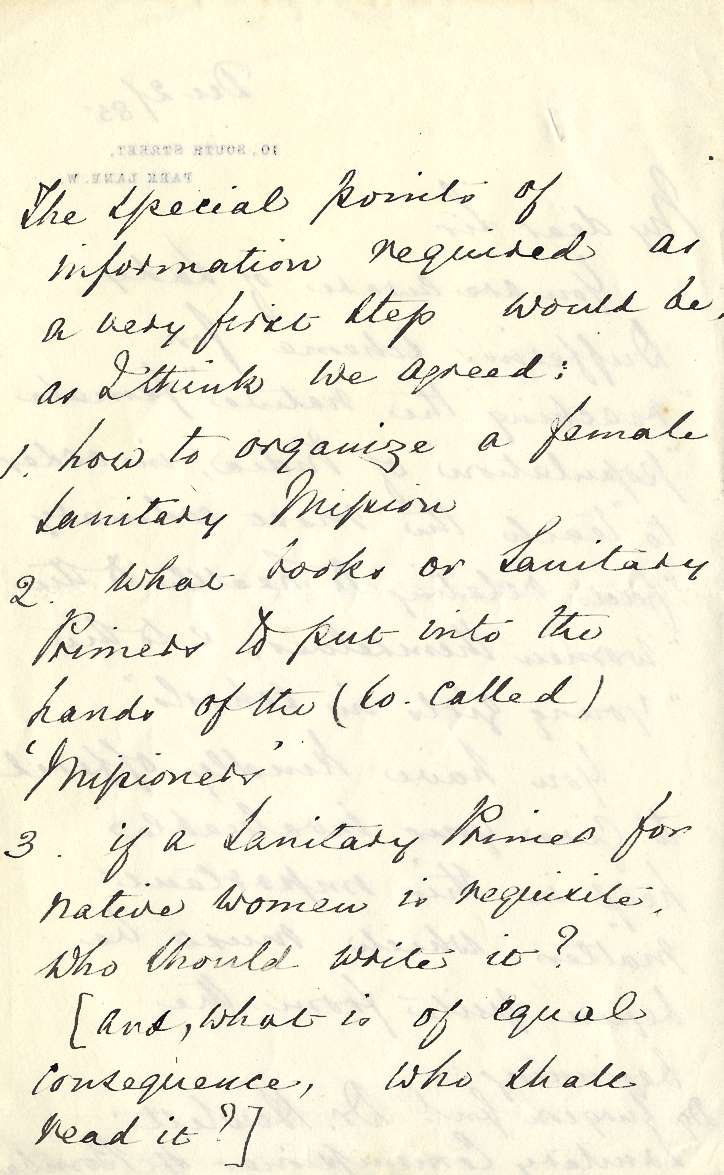 The special points of
information required as
a very first step would be,
as I think we agreed:
1. how to organize a female
Sanitary Mission
2. what books or Sanitary
Primers to put into the
hands of the (so-called)
'Missioners'
3. if a Sanitary Primer for
native women is requisite,
who should write it?
[and, what is of equal
consequence, who shall
read it?]